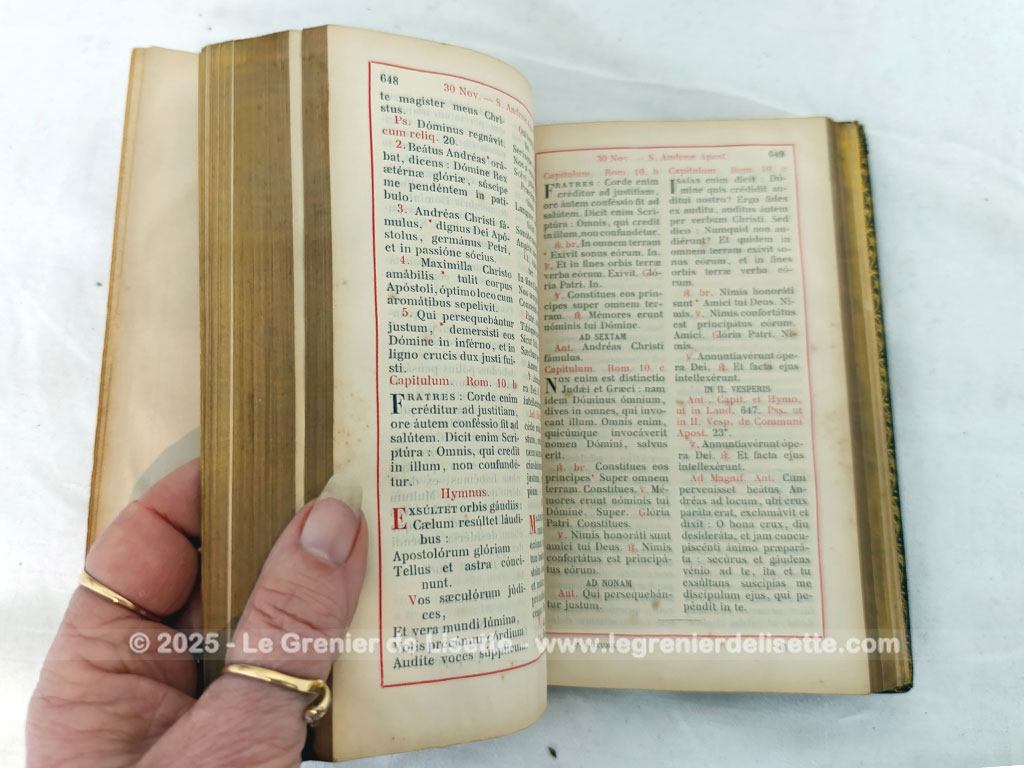 648
30 Nov. — S. Andreæ
te magister meus Chri-
stus.
Ps. Dóminus regnávit.
cum reliq. 20.
2. Beátus Andréas * orá-
bat, dicens : Dómine Rex
ætérnæ glóriæ, súscipe
me pendéntem in patí-
bulo.
3. Andréas Christi fá-
mulus, * dignus Dei Apó-
stolus, germánus Petri,
et in passióne sócius.
4. Maximilla Christo
amábilis * tulit corpus
Apóstoli, óptimo loco cum
aromátibus sepelívit.
5. Qui persequebántur
justum, * demersísti eos
Dómine in inférno, et in
ligno crucis dux justi fuí-
sti.
Capitulum. Rom. 10. b
FRATRES : Corde enim
créditur ad justítiam,
ore áutem conféssio fit ad
salútem. Dicit enim Scri-
ptúra : Omnis, qui credit
in illum, non confundé-
tur.
Hymnus.
EXSÚLTET orbis gáudiis:
Cælum resúltet láudi-
bus :
Apostolórum glóriam
Tellus et astra cónci-
nunt.
Vos sæculórum júdi-
ces,
Et vera mundi lúmina,
Votis precámur córdium:
Audíte voces súpplicum.
30 Nov. — S. Andreæ Apost.
649
Capitulum. Rom. 10. b
FRATRES : Corde enim
créditur ad justítiam,
ore áutem conféssio fit ad
salútem. Dicit enim Scri-
ptúra : Omnis, qui credit
in illum, non confundétur.
℟. br. In omnem terram
* Exívit sonus eórum. In.
℣. Et in fines orbis terræ
verba eórum. Exívit. Gló-
ria Patri. In.
℣. Constítues eos prín-
cipes super omnem ter-
ram. ℟. Mémores erunt
nóminis tui Dómine.
AD SEXTAM
Ant. Andréas Christi
fámulus.
Capitulum. Rom. 10. c
NON enim est distínctio
Judæi et Græci : nam
idem Dóminus ómnium,
dives in omnes, qui ínvo-
cant illum. Omnis enim,
quicúmque invocáverit
nomen Dómini, salvus
erit.
℟. br. Constítues eos
príncipes * Super omnem
terram. Constítues. ℣. Mé-
mores erunt nóminis tui
Dómine. Super. Glória
Patri. Constítues.
℣. Nimis honoráti sunt
amíci tui Deus. ℟. Nimis
confortátus est principá-
tus eórum.
AD NONAM
Ant. Qui persequebán-
tur justum.
Capitulum. Rom. 10 c
ISAÍAS enim dicit : Dó-
mine quis crédidit au-
dítui nostro? Ergo fides
ex audítu, audítus áutem
per verbum Christi. Sed
dico : Numquid non au-
diérunt? Et quidem in
omnem terram exívit so-
nus eórum, et in fines
orbis terræ verba eó-
rum.
℟. br. Nimis honoráti
sunt * Amíci tui Deus. Ni-
mis. ℣. Nimis confortátus
est principátus eórum.
Amíci. Glória Patri. Ni-
mis.
℣. Annuntiavérunt ópe-
ra Dei. ℟. Et facta ejus
intellexérunt.
IN II. VESPERIS
Ant. Capit. et Hymn.
ut in Laud. 647. Pss. ut
in II. Vesp. de Communi
Apost. 23*.
℣. Annuntiavérunt ópe-
ra Dei. ℟. Et facta ejus
intellexérunt.
Ad Magnif. Ant. Cum
pervenísset beátus An-
dréas ad locum, ubi crux
paráta erat, exclamávit et
dixit : O bona crux, diu
desideráta, et jam concu-
piscénti ánimo præpará-
ta : secúrus et gaudens
vénio ad te, ita et tu
exsúltans suscípias me
discípulum ejus, qui pe-
péndit in te.
© 2025 - Le Grenier de Lisette - www.legrenierdelisette.com